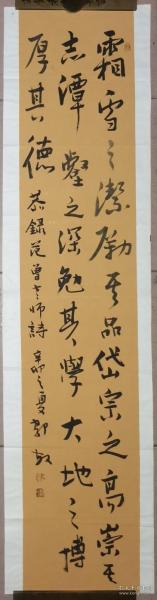 霜雪之潔勵其品岱宗之高崇其
志潭壑之深勉其學大地之博
厚其德 恭錄范曾老師詩 辛卯之夏 郭敬